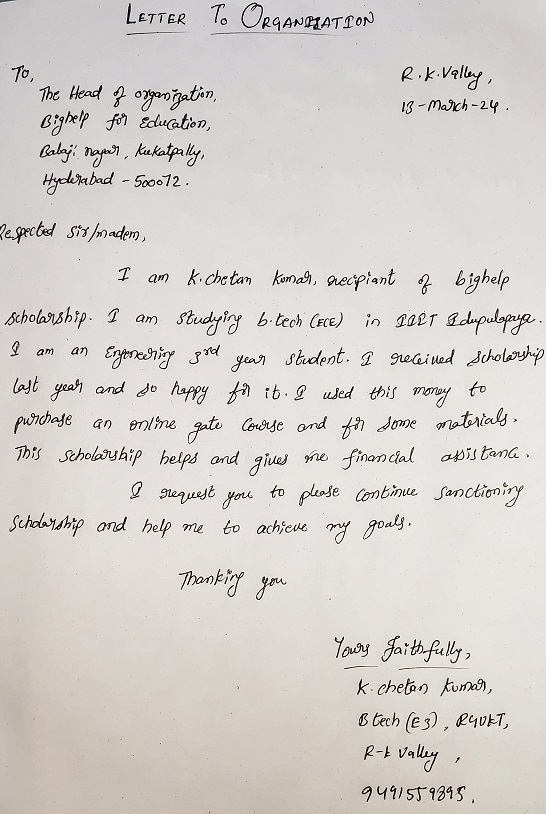 LETTER TO ORGANIZATION
To,
R.K.Valley,
The Head of organization,
13-March-24.
Bighelp for Education,
Balaji nagar, Kukatpally,
Hyderabad - 500072.
Respected sir/madem,
I am K.chetan Kumar, recipiant of bighelp
scholarship. I am studying b.tech (ECE) in IIIT Idupulapaya.
I am an Engeneering 3rd year student. I received scholarship
last year and so happy for it. I used this money to
purchase an online gate course and for some materials.
This scholarship helps and gives me financial assistance.
I request you to please continue sanctioning
scholarship and help me to achieve my goals.
Thanking you
Yours faithfully,
K. chetan Kumar,
B tech (E3), RGUKT,
R-k valley,
9491559895.